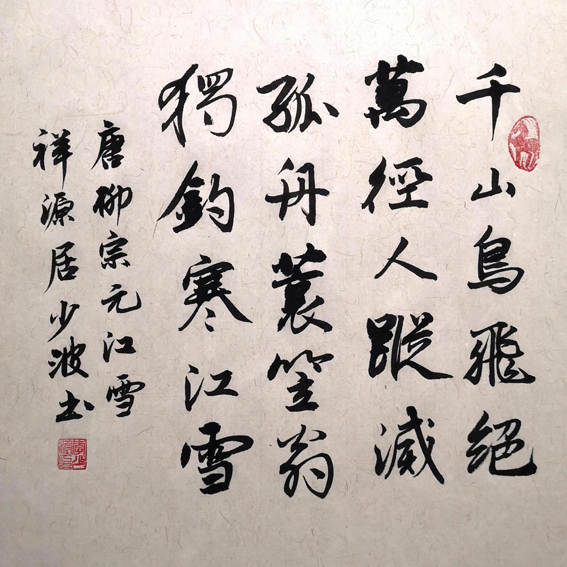 千山鳥飛絕
萬徑人蹤滅
孤舟蓑笠翁
獨釣寒江雪
唐柳宗元江雪
祥源居少波书